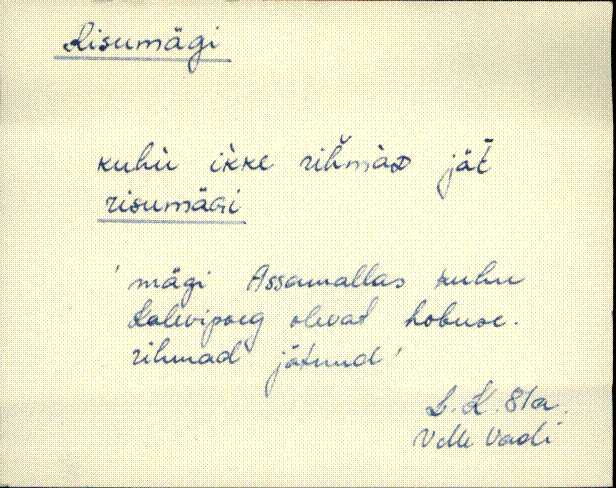 Risumägi
kuhù ikke rihmàD jät̄
risumäGi
' mägi Assamallas kuhu
Kalevipoeg olevat hobuse.
rihmad jätnud '
L. K. 81a.
Velle Vadi